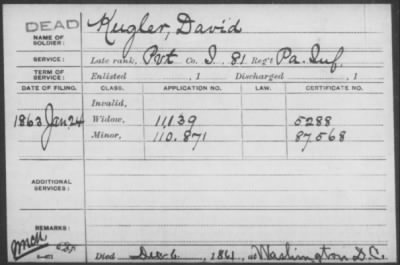 DEAD
NAME OF SOLDIER:
Kugler, David
SERVICE:
Late rank, Pvt Co. I. 81 Reg't Pa. Inf.
TERM OF SERVICE:
Enlisted , 1 Discharged , 1
DATE OF FILING. CLASS. APPLICATION NO. LAW. CERTIFICATE NO.
Invalid,
1863 Jan. 24 Widow, 11,139 5288
Minor, 110.871 87,568
ADDITIONAL SERVICES:
REMARKS:
Died Dec 6 , 1861, at Washington D.C.